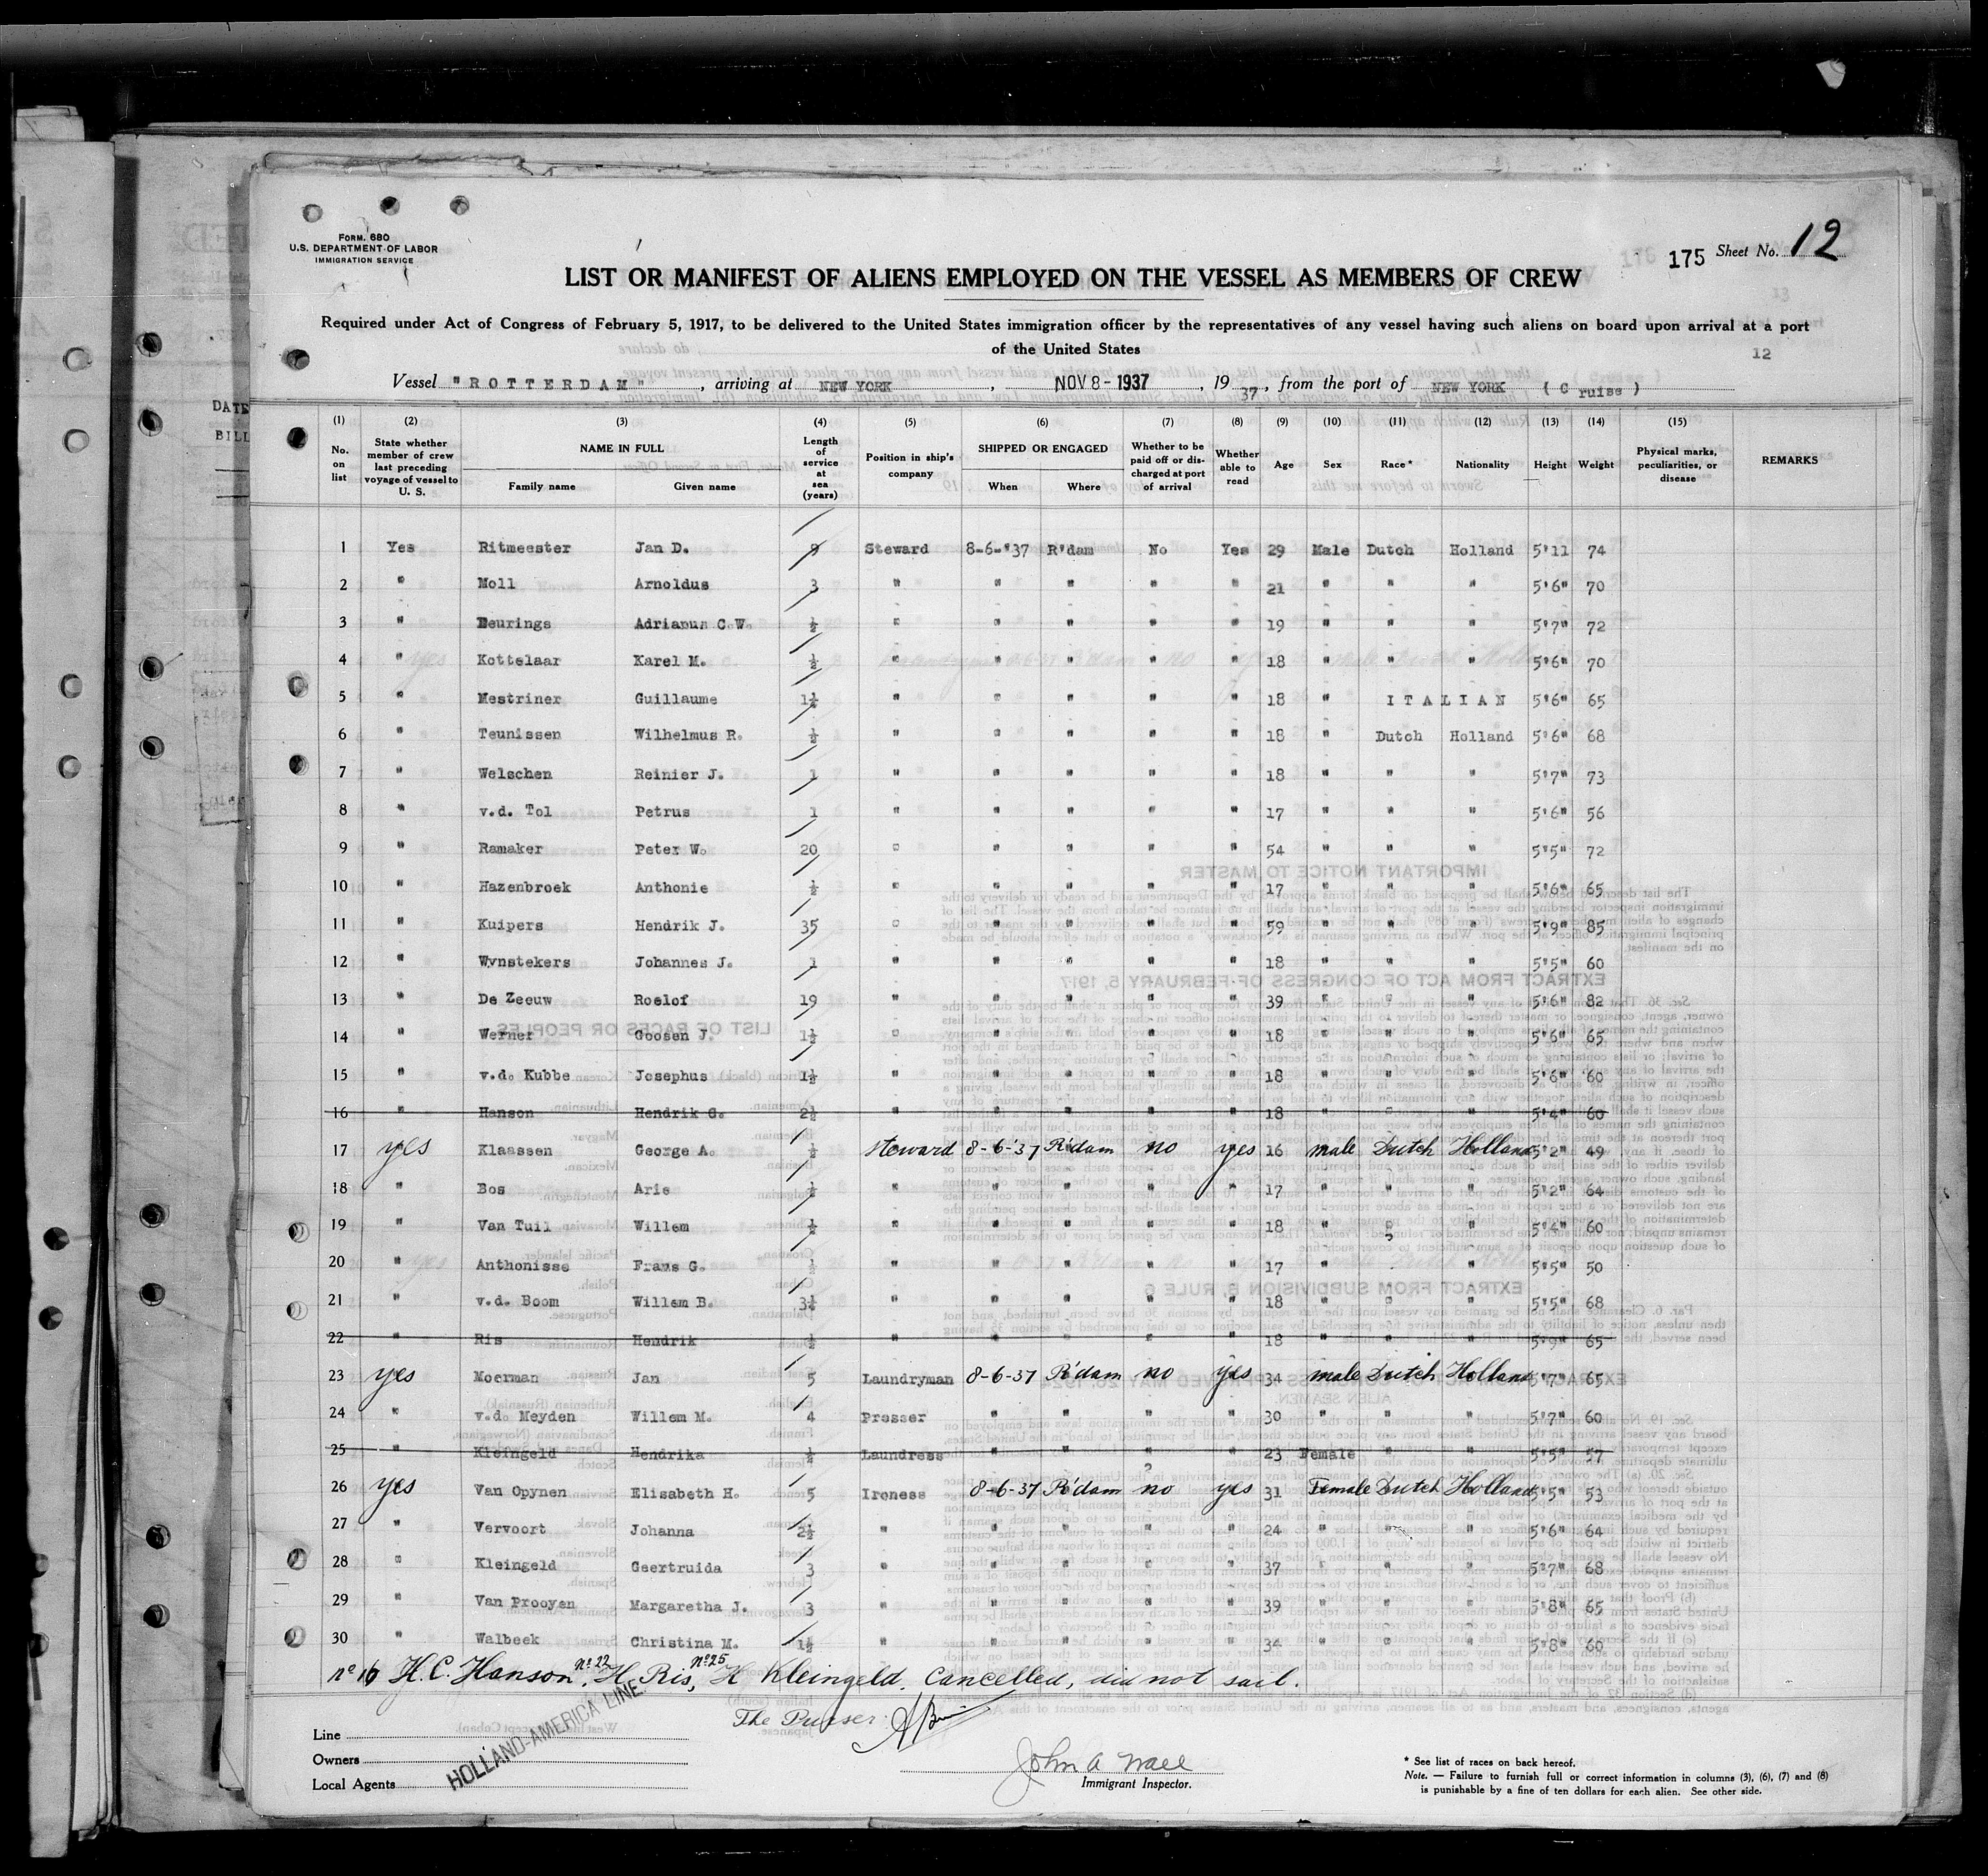 FORM. 680
U.S. DEPARTMENT OF LABOR
IMMIGRATION SERVICE
175 Sheet No. 12
LIST OR MANIFEST OF ALIENS EMPLOYED ON THE VESSEL AS MEMBERS OF CREW
Required under Act of Congress of February 5, 1917, to be delivered to the United States immigration officer by the representatives of any vessel having such aliens on board upon arrival at a port
of the United States
12
Vessel "ROTTERDAM", arriving at NEW YORK, NOV 8 - 1937, 19 37, from the port of NEW YORK (Cruise)
(1) No. on list (2) State whether member of crew last preceding voyage of vessel to U. S. (3) NAME IN FULL Family name Given name (4) Length of service at sea (years) (5) Position in ship's company (6) SHIPPED OR ENGAGED When Where (7) Whether to be paid off or discharged at port of arrival (8) Whether able to read (9) Age (10) Sex (11) Race* (12) Nationality (13) Height (14) Weight (15) Physical marks, peculiarities, or disease REMARKS
1 Yes Ritmeester Jan D. 9 Steward 8-6-'37 R'dam No Yes 29 Male Dutch Holland 5'11 74
2 " Moll Arnoldus 3 " " " " " 21 " " " 5'6" 70
3 " Deurings Adrianus C.W. ½ " " " " " 19 " " " 5'7" 72
4 " Kottelaar Karel M. ½ " " " " " 18 " " " 5'6" 70
5 " Mestriner Guillaume 1½ " " " " " 18 " ITALIAN 5'6" 65
6 " Teunissen Wilhelmus R. ½ " " " " " 18 " Dutch Holland 5'6" 68
7 " Welschen Reinier J. 1 " " " " " 18 " " " 5'7" 73
8 " v.d. Tol Petrus 1 " " " " " 17 " " " 5'6" 56
9 " Ramaker Peter W. 20 " " " " " 54 " " " 5'5" 72
10 " Hazenbroek Anthonie ½ " " " " " 17 " " " 5'6" 65
11 " Kuipers Hendrik J. 35 " " " " " 59 " " " 5'9" 85
12 " Wynstekers Johannes J. 1 " " " " " 18 " " " 5'5" 60
13 " De Zeeuw Roelof 19 " " " " " 39 " " " 5'6" 82
14 " Werner Goosen J. 1½ " " " " " 18 " " " 5'6" 65
15 " v.d. Kubbe Josephus 1½ " " " " " 18 " " " 5'6" 60
16 " Hanson Hendrik G. 2½ " " " " " 18 " " " 5'4" 60
17 yes Klaassen George A. ½ Steward 8-6-'37 R'dam no yes 16 male Dutch Holland 5'2" 49
18 " Bos Arie ½ " " " " " 17 " " " 5'2" 64
19 " Van Tuil Willem ½ " " " " " 18 " " " 5'4" 60
20 " Anthonisse Frans G. ½ " " " " " 17 " " 5'5" 50
21 " v.d. Boom Willem B. 3½ " " " " " 18 " " " 5'5" 68
22 " Ris Hendrik ½ " " " " " 18 " " " 5'9" 65
23 yes Moerman Jan 5 Laundryman 8-6-37 R'dam no yes 34 male Dutch Holland 5'7" 65
24 " v.d. Meyden Willem M. 4 Presser " " " " 30 " " " 5'7" 60
25 " Kleingeld Hendrika ½ Laundress " " " " 23 Female " " 5'5" 57
26 yes Van Opynen Elisabeth H. 5 Ironess 8-6-37 R'dam no yes 31 Female Dutch Holland 5'5" 53
27 " Vervoort Johanna 2½ " " " " " 24 " " " 5'6" 64
28 " Kleingeld Geertruida 3 " " " " " 37 " " " 5'7" 68
29 " Van Prooyen Margaretha J. 3 " " " " " 39 " " " 5'8" 65
30 " Walbeek Christina M. 1½ " " " " " 34 " " " 5'8" 60
no 16 H.C. Hanson, no 22 H. Ris, no 25 H Kleingeld, Cancelled, did not sail.
The Purser:
Line
Owners
Local Agents
HOLLAND-AMERICA LINE
John A Wall
Immigrant Inspector.
* See list of races on back hereof.
Note. — Failure to furnish full or correct information in columns (3), (6), (7) and (8)
is punishable by a fine of ten dollars for each alien. See other side.